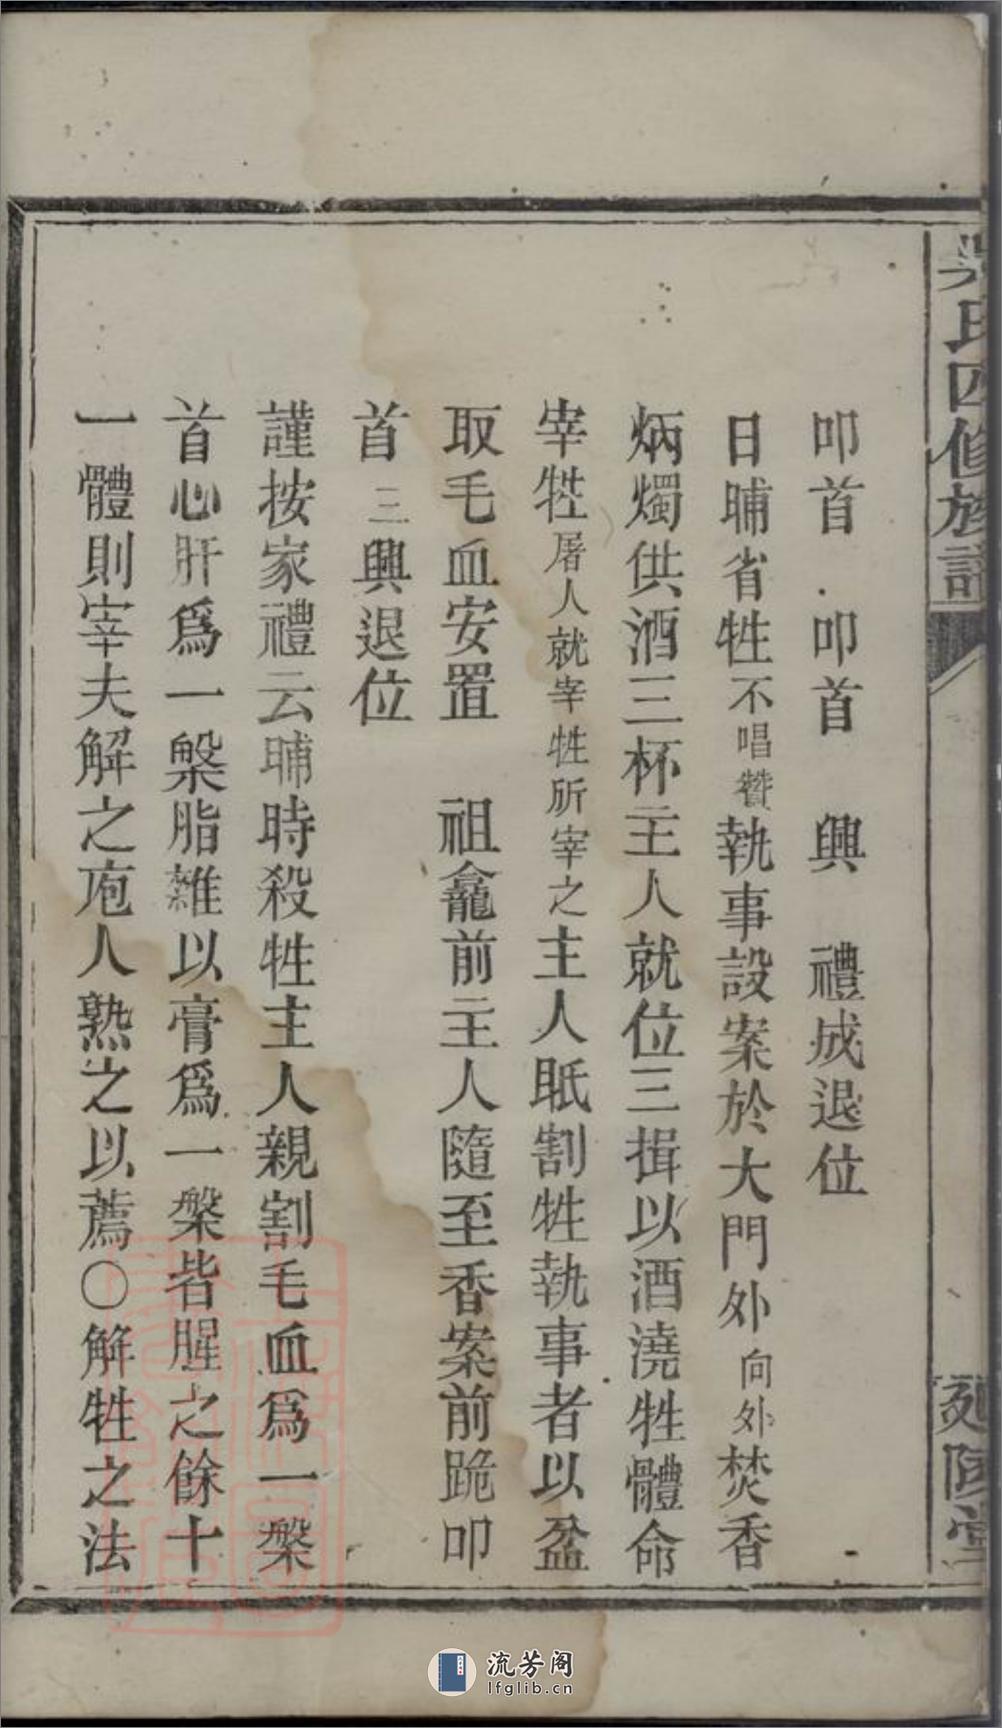 吳氏四修族譜
延陵堂
叩首 叩首 興 禮成退位
日晡省牲不唱贊執事設案於大門外向外焚香
炳燭供酒三杯主人就位三揖以酒澆牲體命
宰牲屠人就宰牲所宰之主人眂割牲執事者以盆
取毛血安置 祖龕前主人隨至香案前跪叩
首三興退位
謹按家禮云晡時殺牲主人親割毛血爲一槃
首心肝爲一槃脂雜以膏爲一槃皆腥之餘十
一體則宰夫解之庖人熟之以薦○解牲之法
流芳阁
lfglib.cn